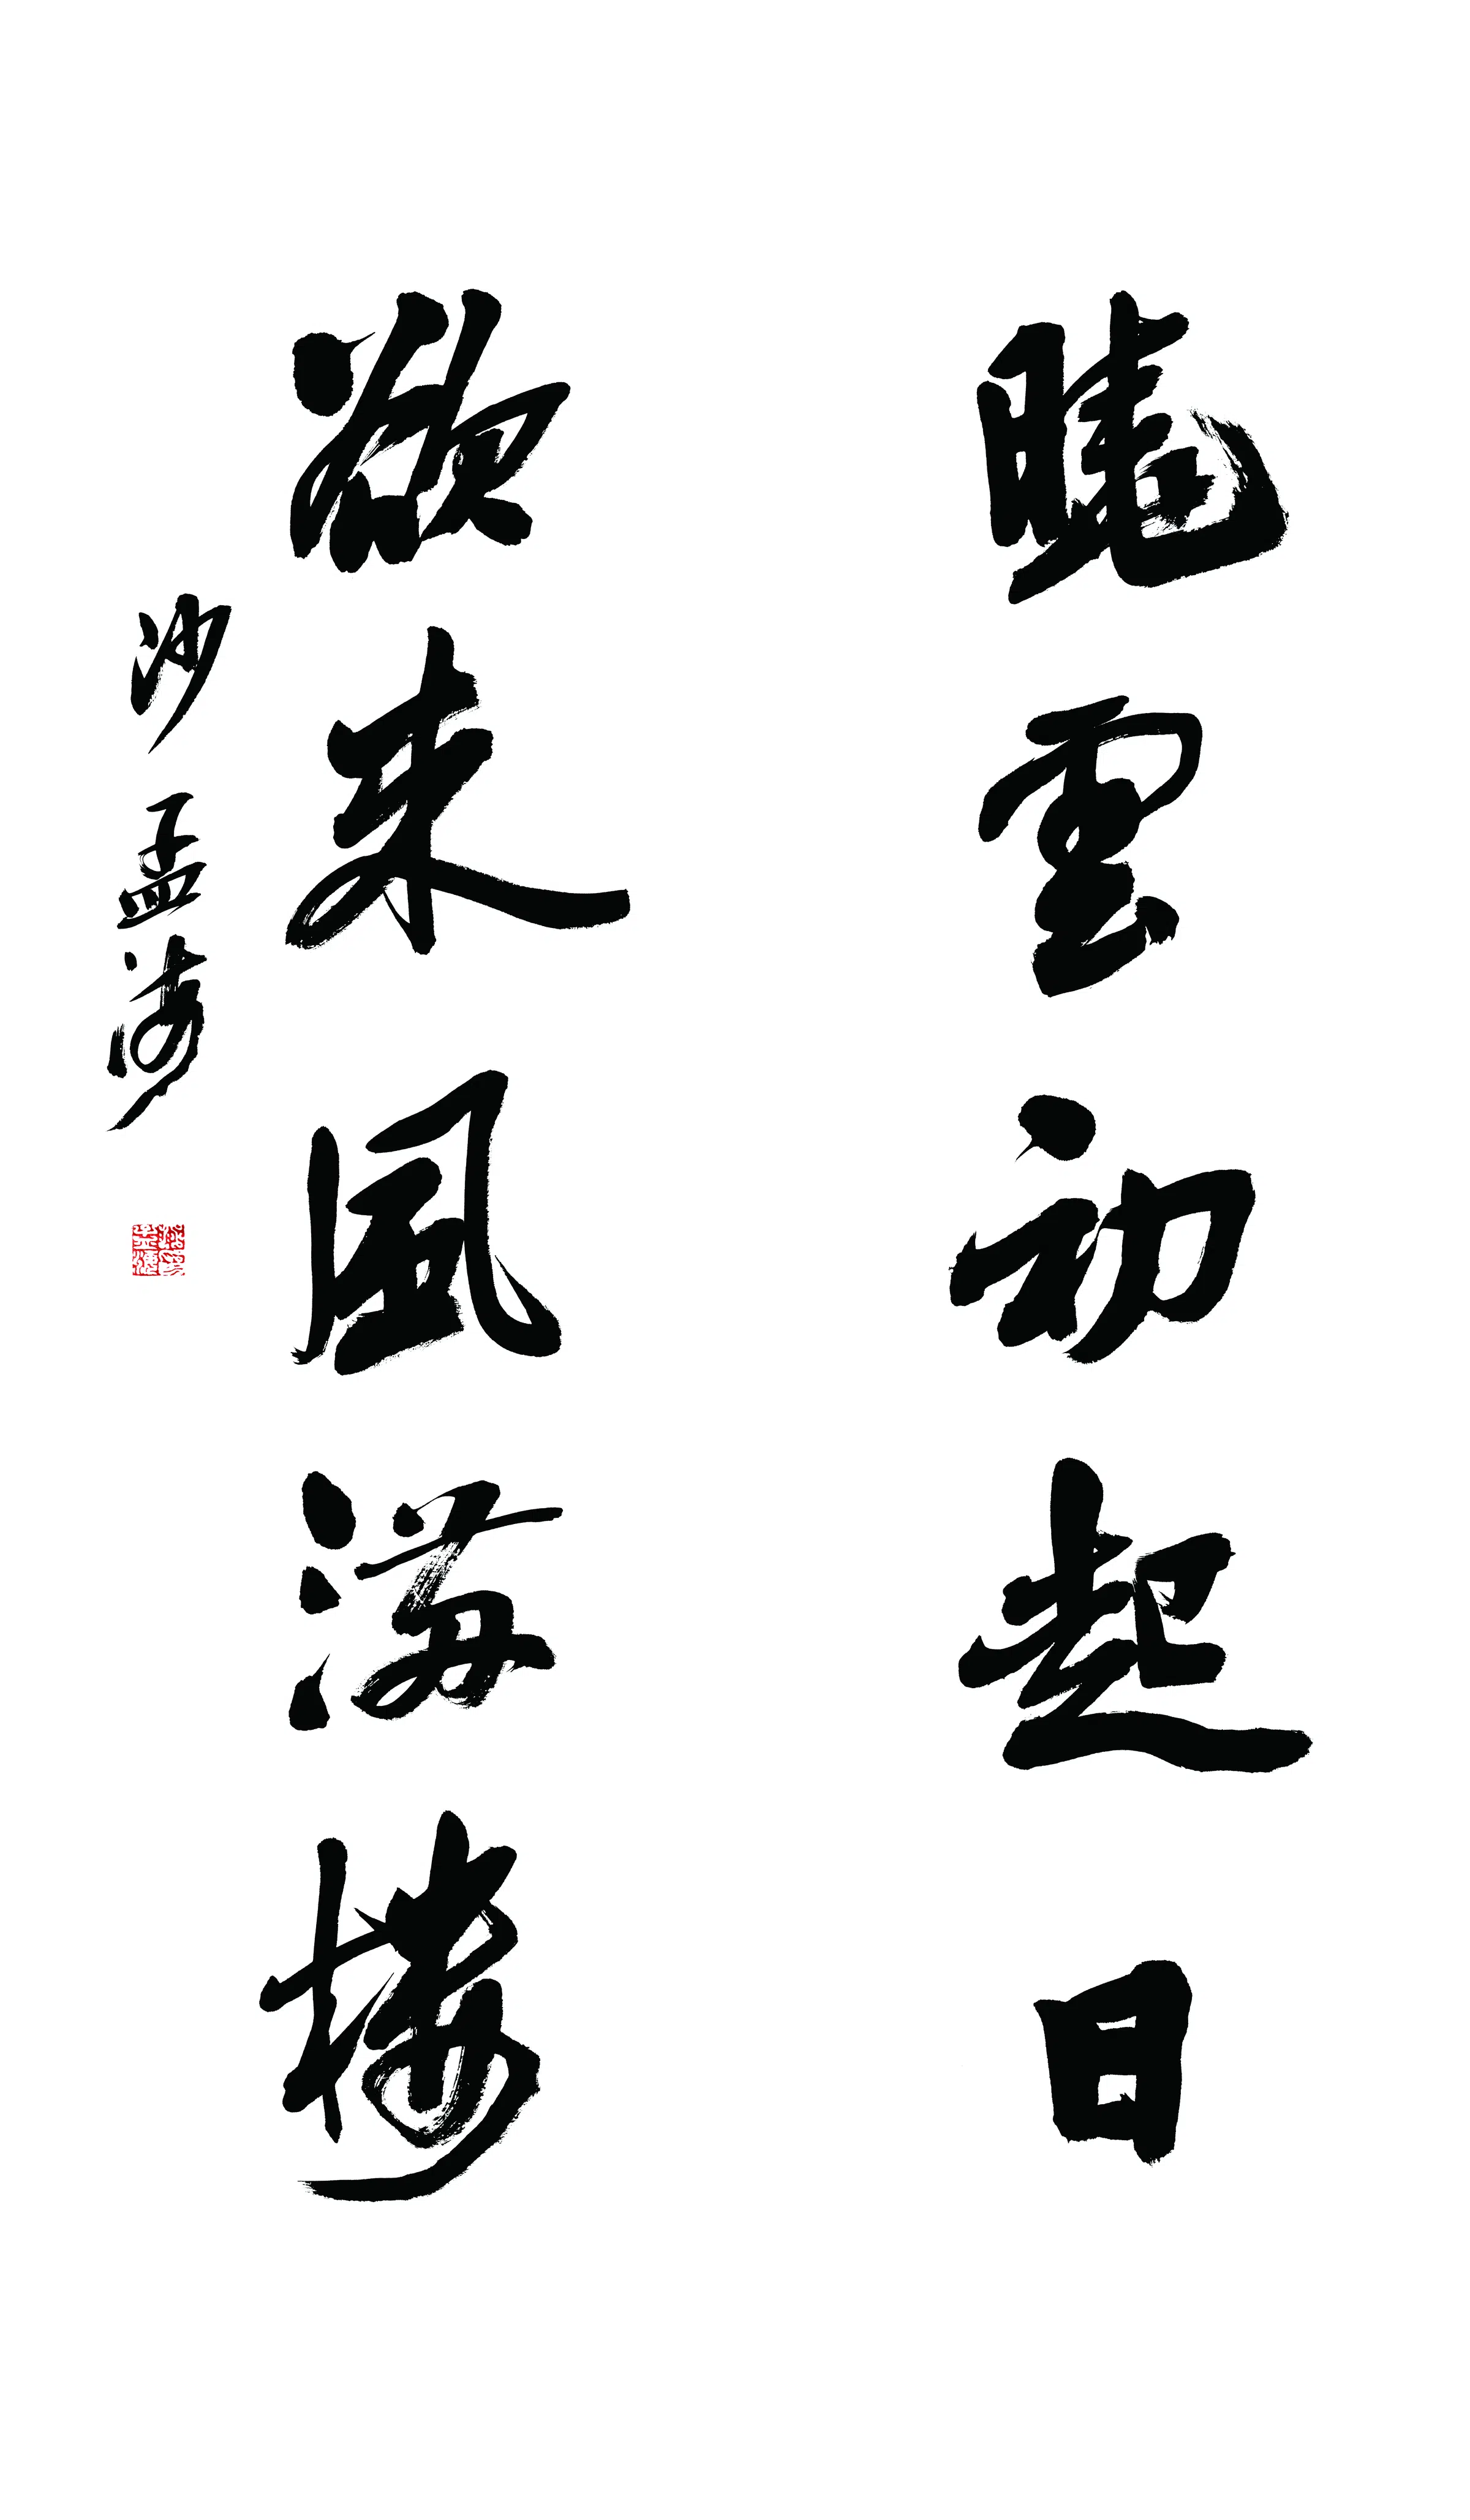 曉雲初起日
來風海樓
沙孟海